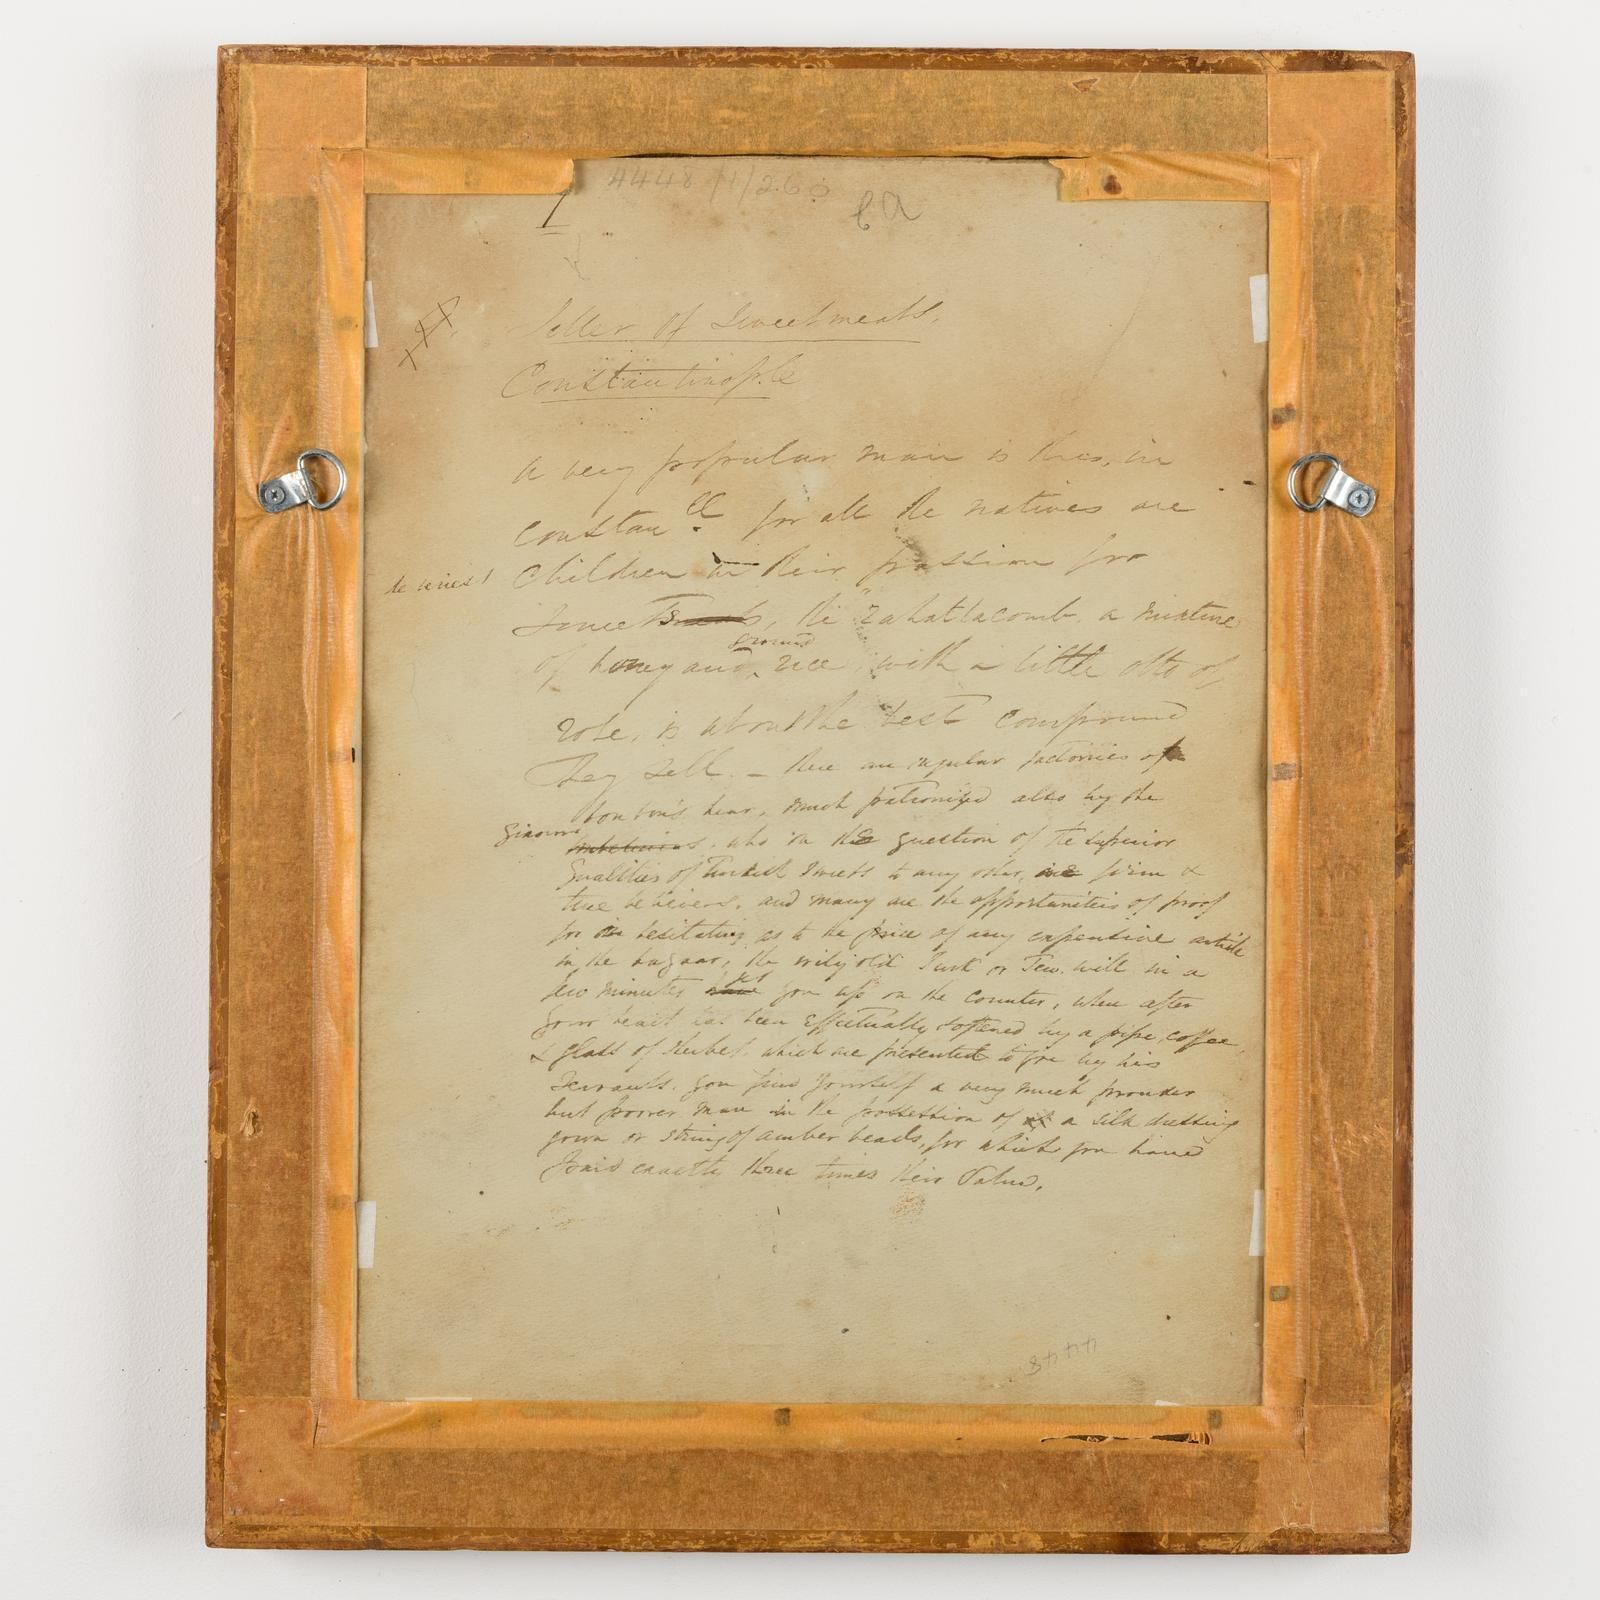 A448 /1/260
1
Seller of Sweetmeats.
Constantinople
A very popular man is this, in
Constan.ll for all the natives are
Children in their passion for
Sweets, the "Rahatlacomb, a mixture
of honey and ground rice, with a little otto of
rose, is about the best compound
They sell. – there are regular factories of
bon bons here, much patronized also by the
Giaours who in the question of the superior
qualities of Turkish Sweets to any other, are firm &
true believers, and many are the opportunities of proof
for in hesitating as to the price of any expensive article
in the bazaar, the wily old Turk or Jew will in a
few minutes set you up on the counter, when after
your heart has been effectually softened by a pipe, coffee
& glass of sherbet, which are presented to you by his
Servants, you find yourself a very much prouder
but poorer man in the possession of a silk dressing
gown or string of amber beads, for which you have
paid exactly three times their value.
4448